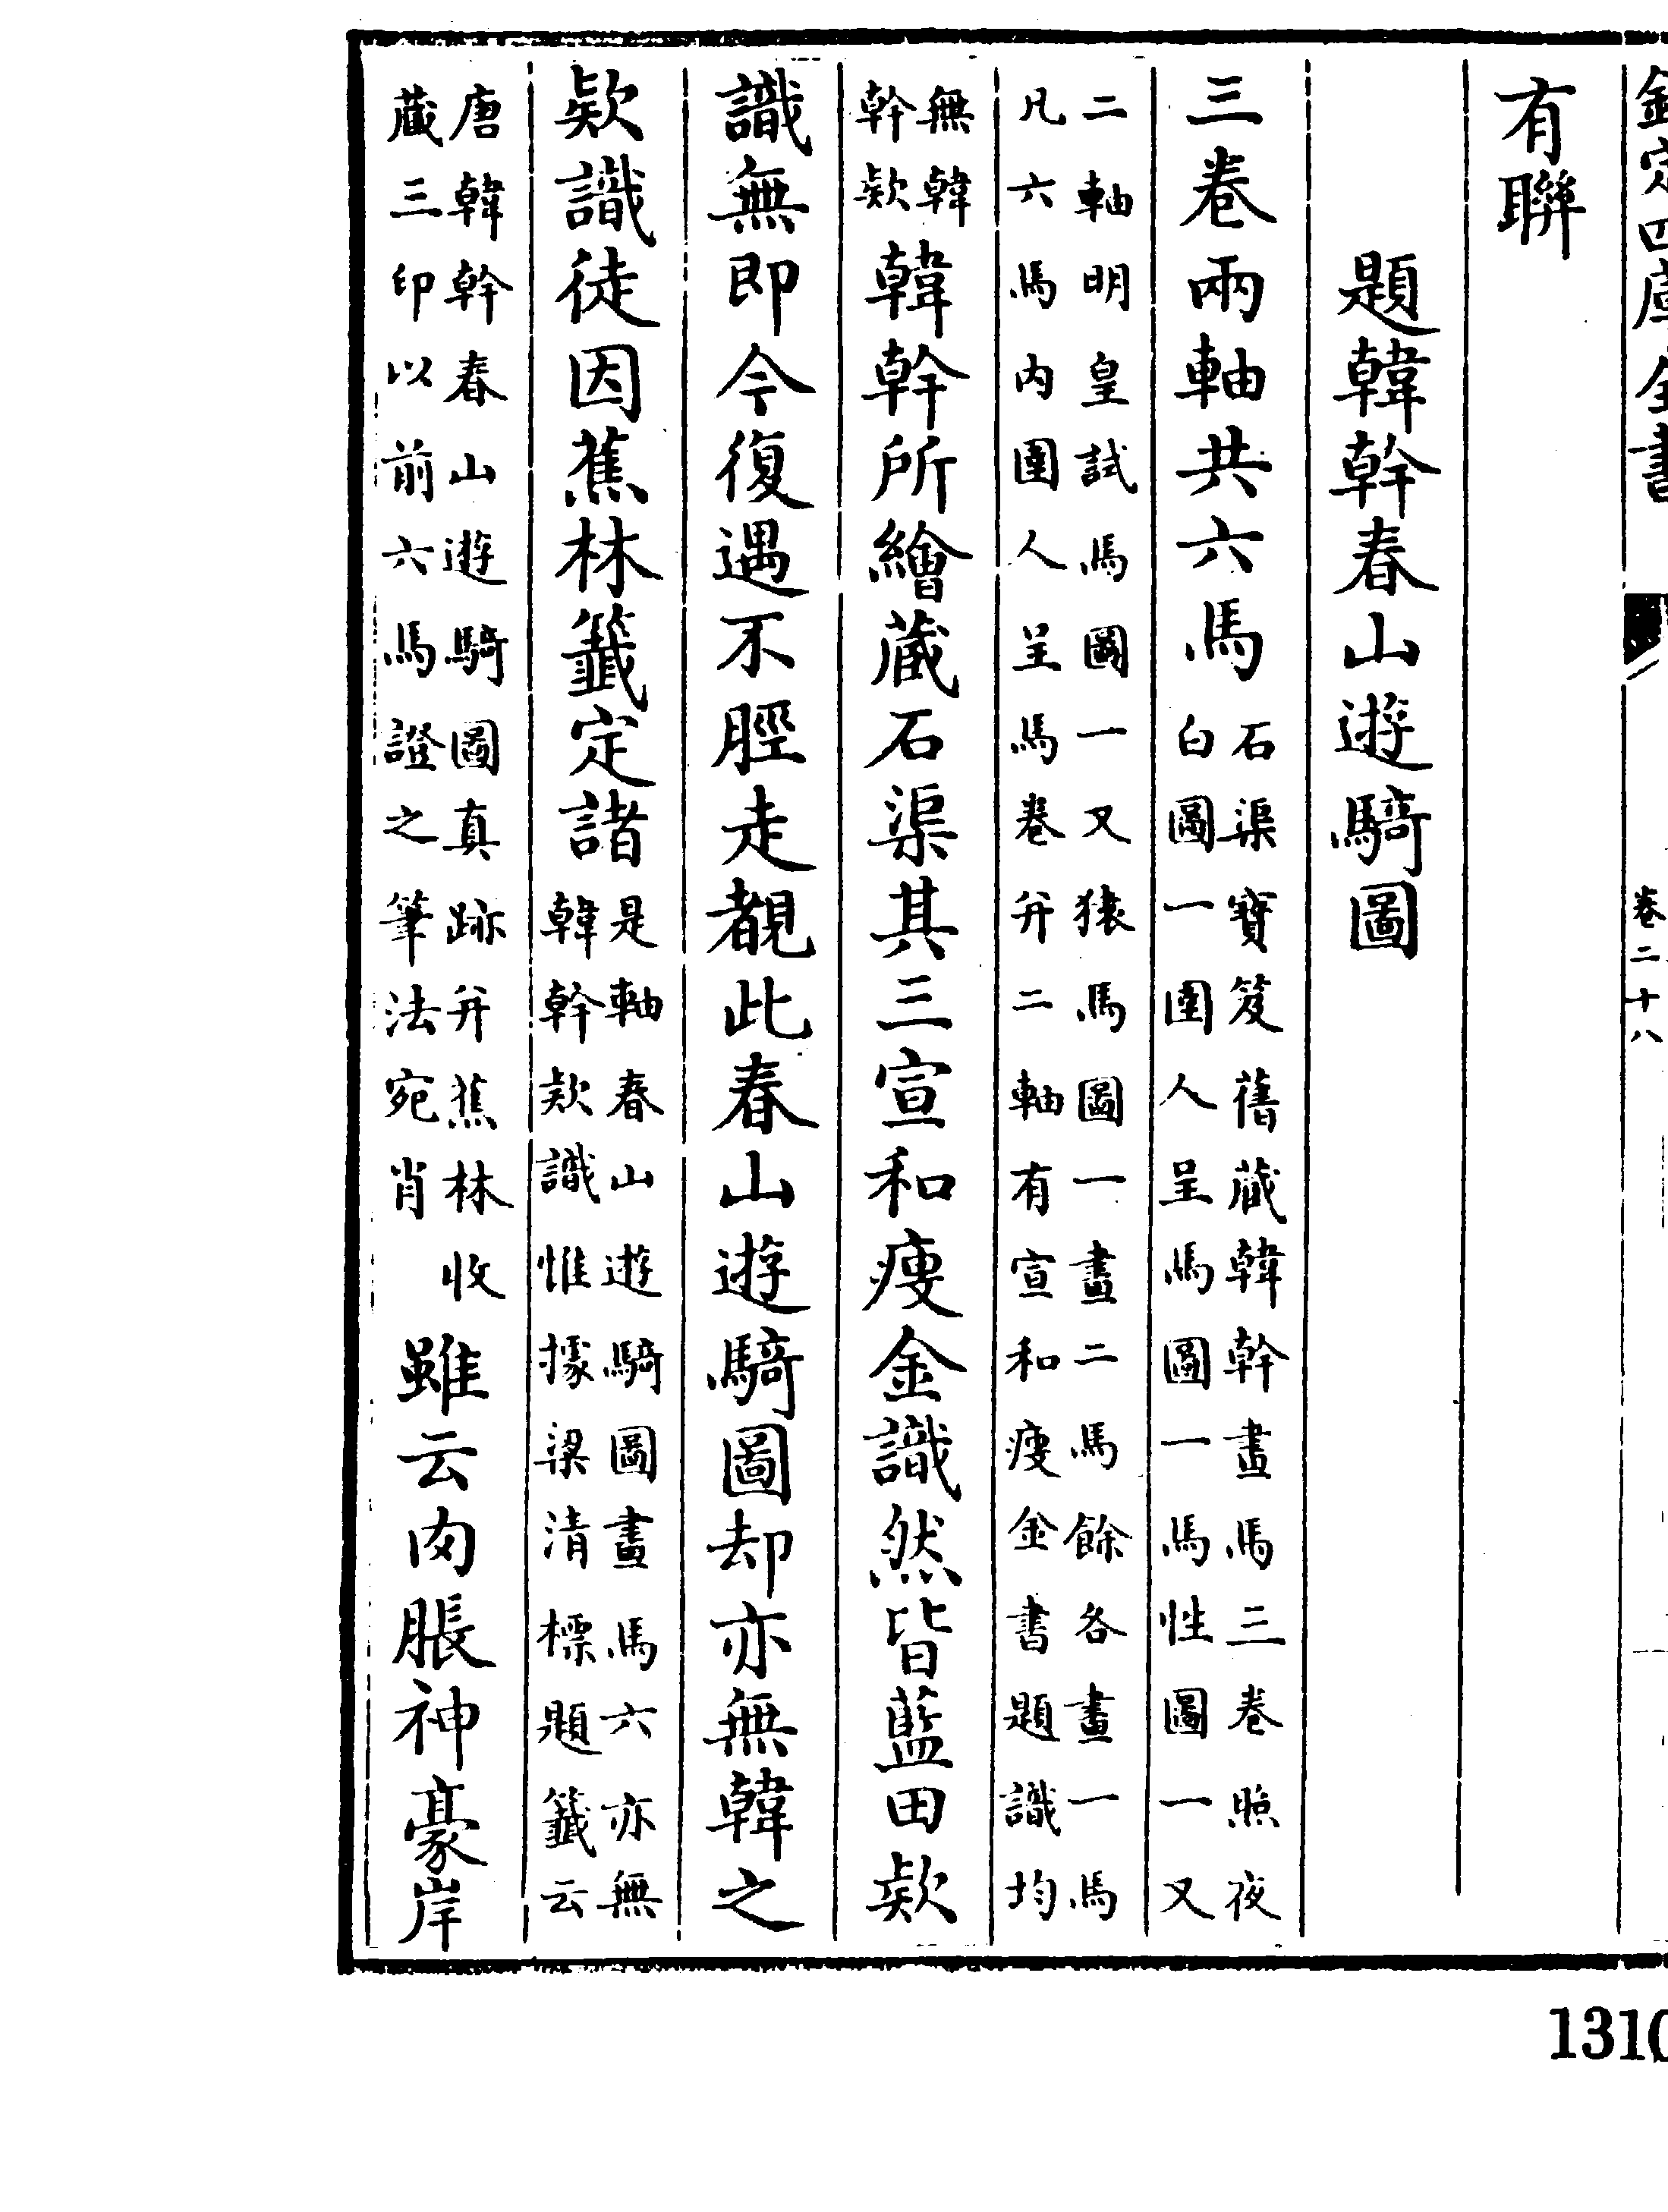 欽定四庫全書
卷二十八
有聯
題韓幹春山遊騎圖
三卷兩軸共六馬
石渠寶笈舊藏韓幹畫馬三卷照夜
白圖一圉人呈馬圖一馬性圖一又
二軸明皇試馬圖一又猿馬圖一畫二馬餘各畫一馬
凡六馬內圉人呈馬卷并二軸有宣和瘦金書題識均
無韓
幹款
韓幹所繪藏石渠其三宣和瘦金識然皆藍田款
識無即今復遇不脛走覩此春山遊騎圖却亦無韓之
款識徒因蕉林籤定諸
是軸春山遊騎圖畫馬六亦無
韓幹款識惟據梁清標題籤云
唐韓幹春山遊騎圖真跡并蕉林收
藏三印以前六馬證之筆法宛肖
雖云肉脹神豪岸
1310